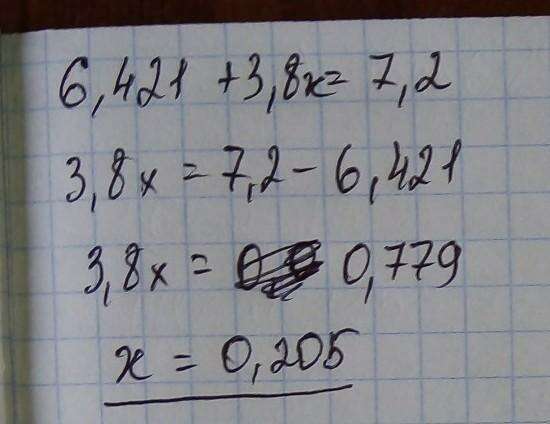 6,421 +3,8x= 7,2
3,8x = 7,2 - 6,421
3,8x = 0,779
x = 0,205